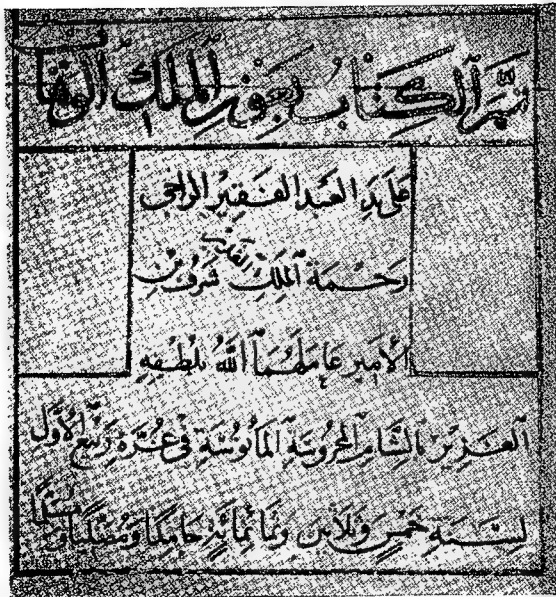 تم الكتاب بعون الملك الوهاب
على يد العبد الفقير الراجى
رحمة الملك شرف بن
الأمير عاملهما الله بلطفه
العزيز بالشام المحروسة المأنوسة فى غرة ربيع الأول
لسنة خمس وثلاثين وثمانمائة حامدا ومصليا ومسلما